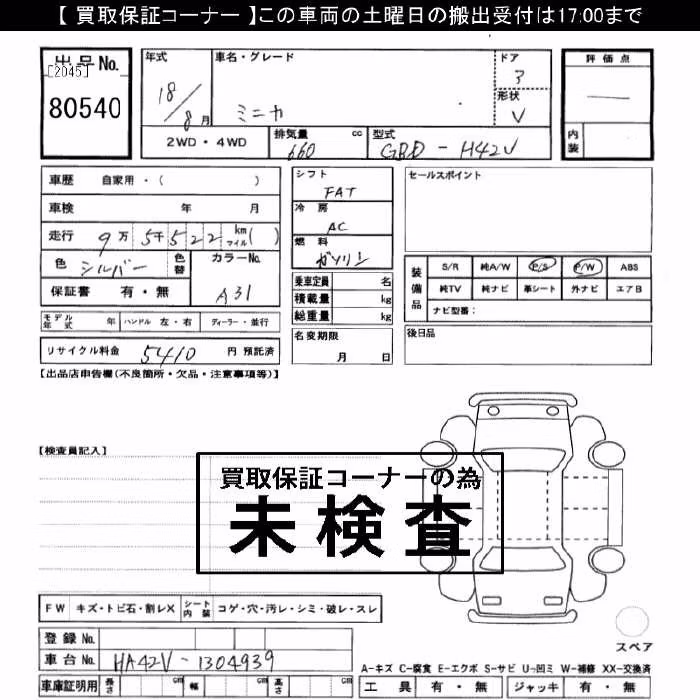 【 買取保証コーナー 】この車両の土曜日の搬出受付は17:00まで
出品No.
[2045]
80540
年式
18/8月
車名・グレード
ミニカ
ドア
3
形状
V
評価点
—
内装
2WD・4WD
排気量 660 cc
型式 GBD-H42V
車歴 自家用・( )
車検 年 月
走行 9万5千522 km マイル( )
色 シルバー 色替
カラーNo. A31
保証書 有・無
モデル年式 年 ハンドル 左・右 ディーラー・並行
リサイクル料金 5410 円 預託済
シフト
FAT
冷房
AC
燃料
ガソリン
乗車定員 名
積載量 kg
総重量 kg
名変期限
月 日
セールスポイント
装備品
S/R 純A/W P/S P/W ABS
純TV 純ナビ 革シート 外ナビ エアB
ナビ型番:
後日品
【出品店申告欄(不良箇所・欠品・注意事項等)】
【検査員記入】
買取保証コーナーの為
未検査
FW キズ・トビ石・割レX シート内装 コゲ・穴・汚レ・シミ・破レ・スレ
登録 No.
車台 No. HA42V-1304939
車庫証明用 長さ cm 幅 cm 高さ cm
スペア
A-キズ C-腐食 E-エクボ S-サビ U-凹ミ W-補修 XX-交換済
工具 有・無 ジャッキ 有・無